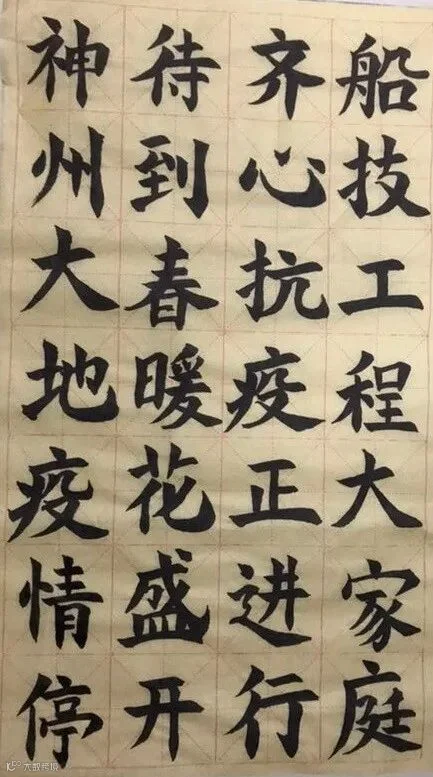 船技工程大家庭
齐心抗疫正进行
待到春暖花盛开
神州大地疫情停